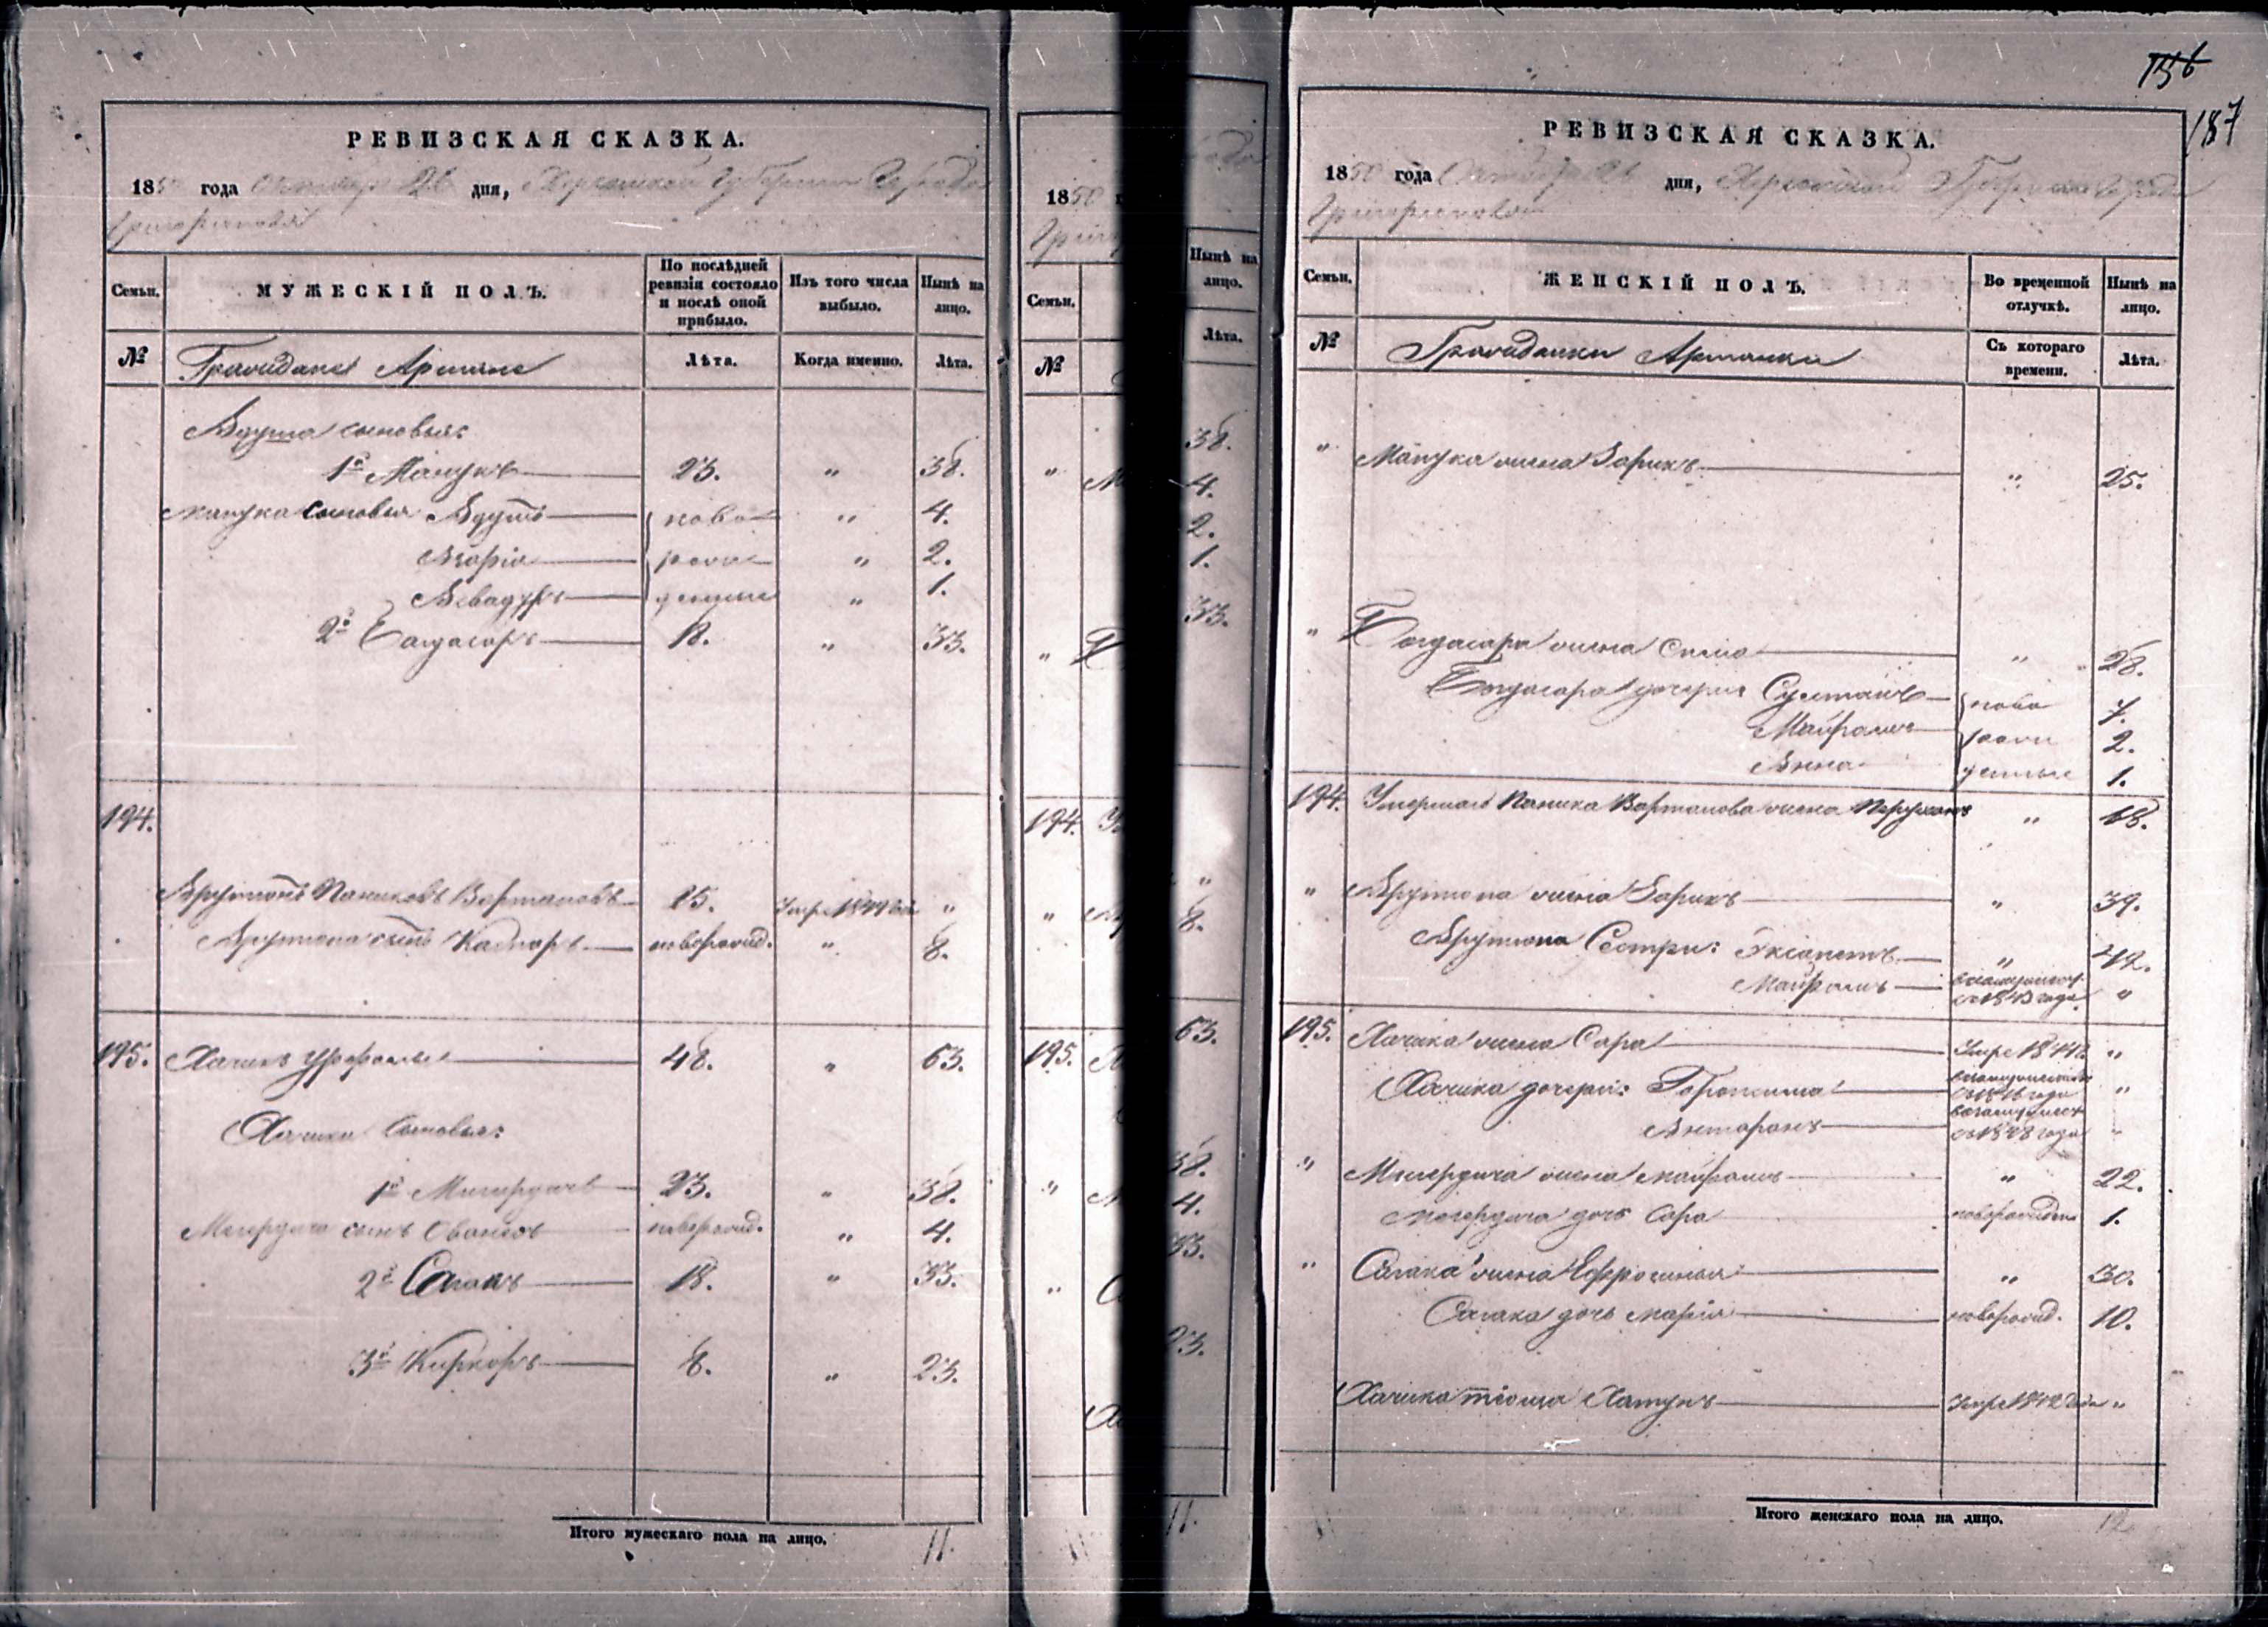 РЕВИЗСКАЯ СКАЗКА.
1850 года октября 26 дня, Херсонской Губернии Города
Григориополя
Семьи. МУЖЕСКІЙ ПОЛЪ. По послѣдней ревизіи состояло и послѣ оной прибыло. Изъ того числа выбыло. Нынѣ на лицо.
№ Граждане Армяне Лѣта. Когда именно. Лѣта.
сыновья:
1й Манукъ 23. " 38.
Манука сыновья ново " 4.
рож " 2.
денные " 1.
2й Багдасаръ 18. " 33.
194.
Арутюнъ Паниковъ Вартановъ 25. Умре 1849 года "
Арутюна сынъ Каспаръ новорожд. " 8.
195. Хачикъ 48. " 63.
Хачика сыновья:
1й Мигердичь 23. " 38.
Мигердича сынъ Ованесъ новорожд. " 4.
2й Сагакъ 18. " 33.
3й Киркоръ 8. " 23.
Итого мужескаго пола на лицо. 11.
1850
Семьи.
№
"
"
194.
"
195.
"
"
Нынѣ на
лицо.
Лѣта.
38.
4.
2.
1.
33.
"
8.
63.
38.
4.
33.
23.
11.
156
187
РЕВИЗСКАЯ СКАЗКА.
1850 года Октября 26 дня, Херсонской Губернии Города
Григориополя
Семьи. ЖЕНСКІЙ ПОЛЪ. Во временной отлучкѣ. Нынѣ на лицо.
№ Гражданки Армянки Съ котораго времени. Лѣта.
" Манука жена Зарикъ " 25.
" Богдасара жена " 28.
Богдасара дочери Султанъ ново 7.
Майрамъ рож 2.
Анна денные 1.
194. Умершаго Паника Вартанова жена " 68.
" Арутюна жена Зарикъ " 39.
Арутюна Сестры: " 42.
Майрамъ въ замужест. съ 1843 года "
195. Хачика жена Сара Умре 1844 "
Хачика дочери: въ замужестве съ 1846 года "
Антарамъ въ замужест съ 1848 года "
" Мигердича жена Майрамъ " 22.
Мигердича дочь Сара новорожден 1.
" Сагака жена Ефросинья " 30.
Сагака дочь Марія новорожд. 10.
Хачика теща Хатунъ Умре 1842 года "
Итого женскаго пола на лицо. 12